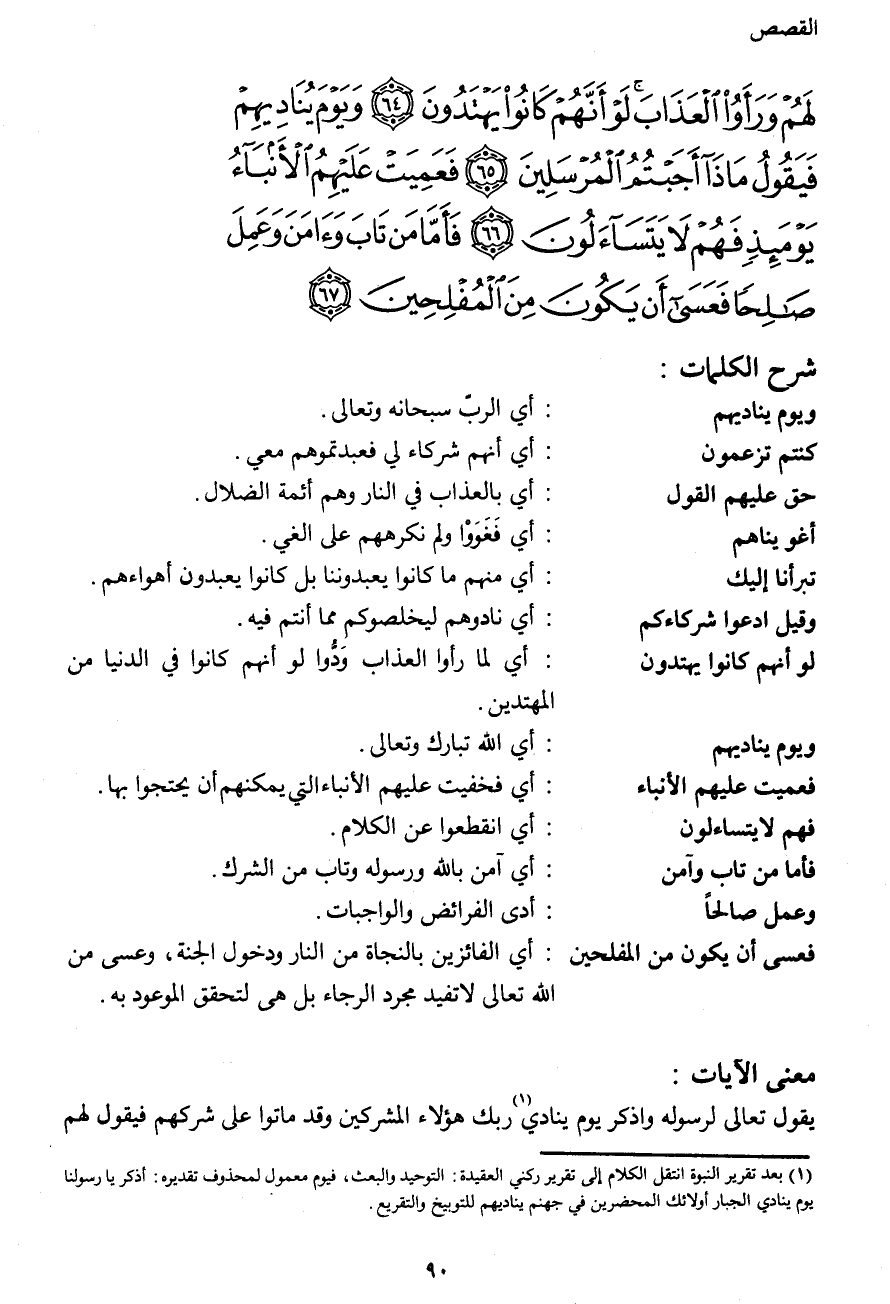 القصص
لَهُمْ وَرَأَوُا۟ ٱلْعَذَابَ ۚ لَوْ أَنَّهُمْ كَانُوا۟ يَهْتَدُونَ ۝٦٤ وَيَوْمَ يُنَادِيهِمْ
فَيَقُولُ مَاذَآ أَجَبْتُمُ ٱلْمُرْسَلِينَ ۝٦٥ فَعَمِيَتْ عَلَيْهِمُ ٱلْأَنۢبَآءُ
يَوْمَئِذٍ فَهُمْ لَا يَتَسَآءَلُونَ ۝٦٦ فَأَمَّا مَن تَابَ وَءَامَنَ وَعَمِلَ
صَٰلِحًا فَعَسَىٰٓ أَن يَكُونَ مِنَ ٱلْمُفْلِحِينَ ۝٦٧
شرح الكلمات :
ويوم يناديهم : أي الربّ سبحانه وتعالى .
كنتم تزعمون : أي أنهم شركاء لي فعبدتموهم معي .
حق عليهم القول : أي بالعذاب في النار وهم أئمة الضلال .
أغو يناهم : أي فَغَوَوْا ولم نكرههم على الغي .
تبرأنا إليك : أي منهم ما كانوا يعبدوننا بل كانوا يعبدون أهواءهم .
وقيل ادعوا شركاءكم : أي نادوهم ليخلصوكم مما أنتم فيه .
لو أنهم كانوا يهتدون : أي لما رأوا العذاب وَدُّوا لو أنهم كانوا في الدنيا من
المهتدين .
ويوم يناديهم : أي الله تبارك وتعالى .
فعميت عليهم الأنباء : أي فخفيت عليهم الأنباء التي يمكنهم أن يحتجوا بها .
فهم لايتساءلون : أي انقطعوا عن الكلام .
فأما من تاب وآمن : أي آمن بالله ورسوله وتاب من الشرك .
وعمل صالحاً : أدى الفرائض والواجبات .
فعسى أن يكون من المفلحين : أي الفائزين بالنجاة من النار ودخول الجنة ، وعسى من
الله تعالى لاتفيد مجرد الرجاء بل هى لتحقق الموعود به .
معنى الآيات :
يقول تعالى لرسوله واذكر يوم ينادي(١) ربك هؤلاء المشركين وقد ماتوا على شركهم فيقول لهم
(١) بعد تقرير النبوة انتقل الكلام إلى تقرير ركني العقيدة : التوحيد والبعث ، فيوم معمول لمحذوف تقديره : أذكر يا رسولنا
يوم ينادي الجبار أولائك المحضرين في جهنم يناديهم للتوبيخ والتقريع .
٩٠